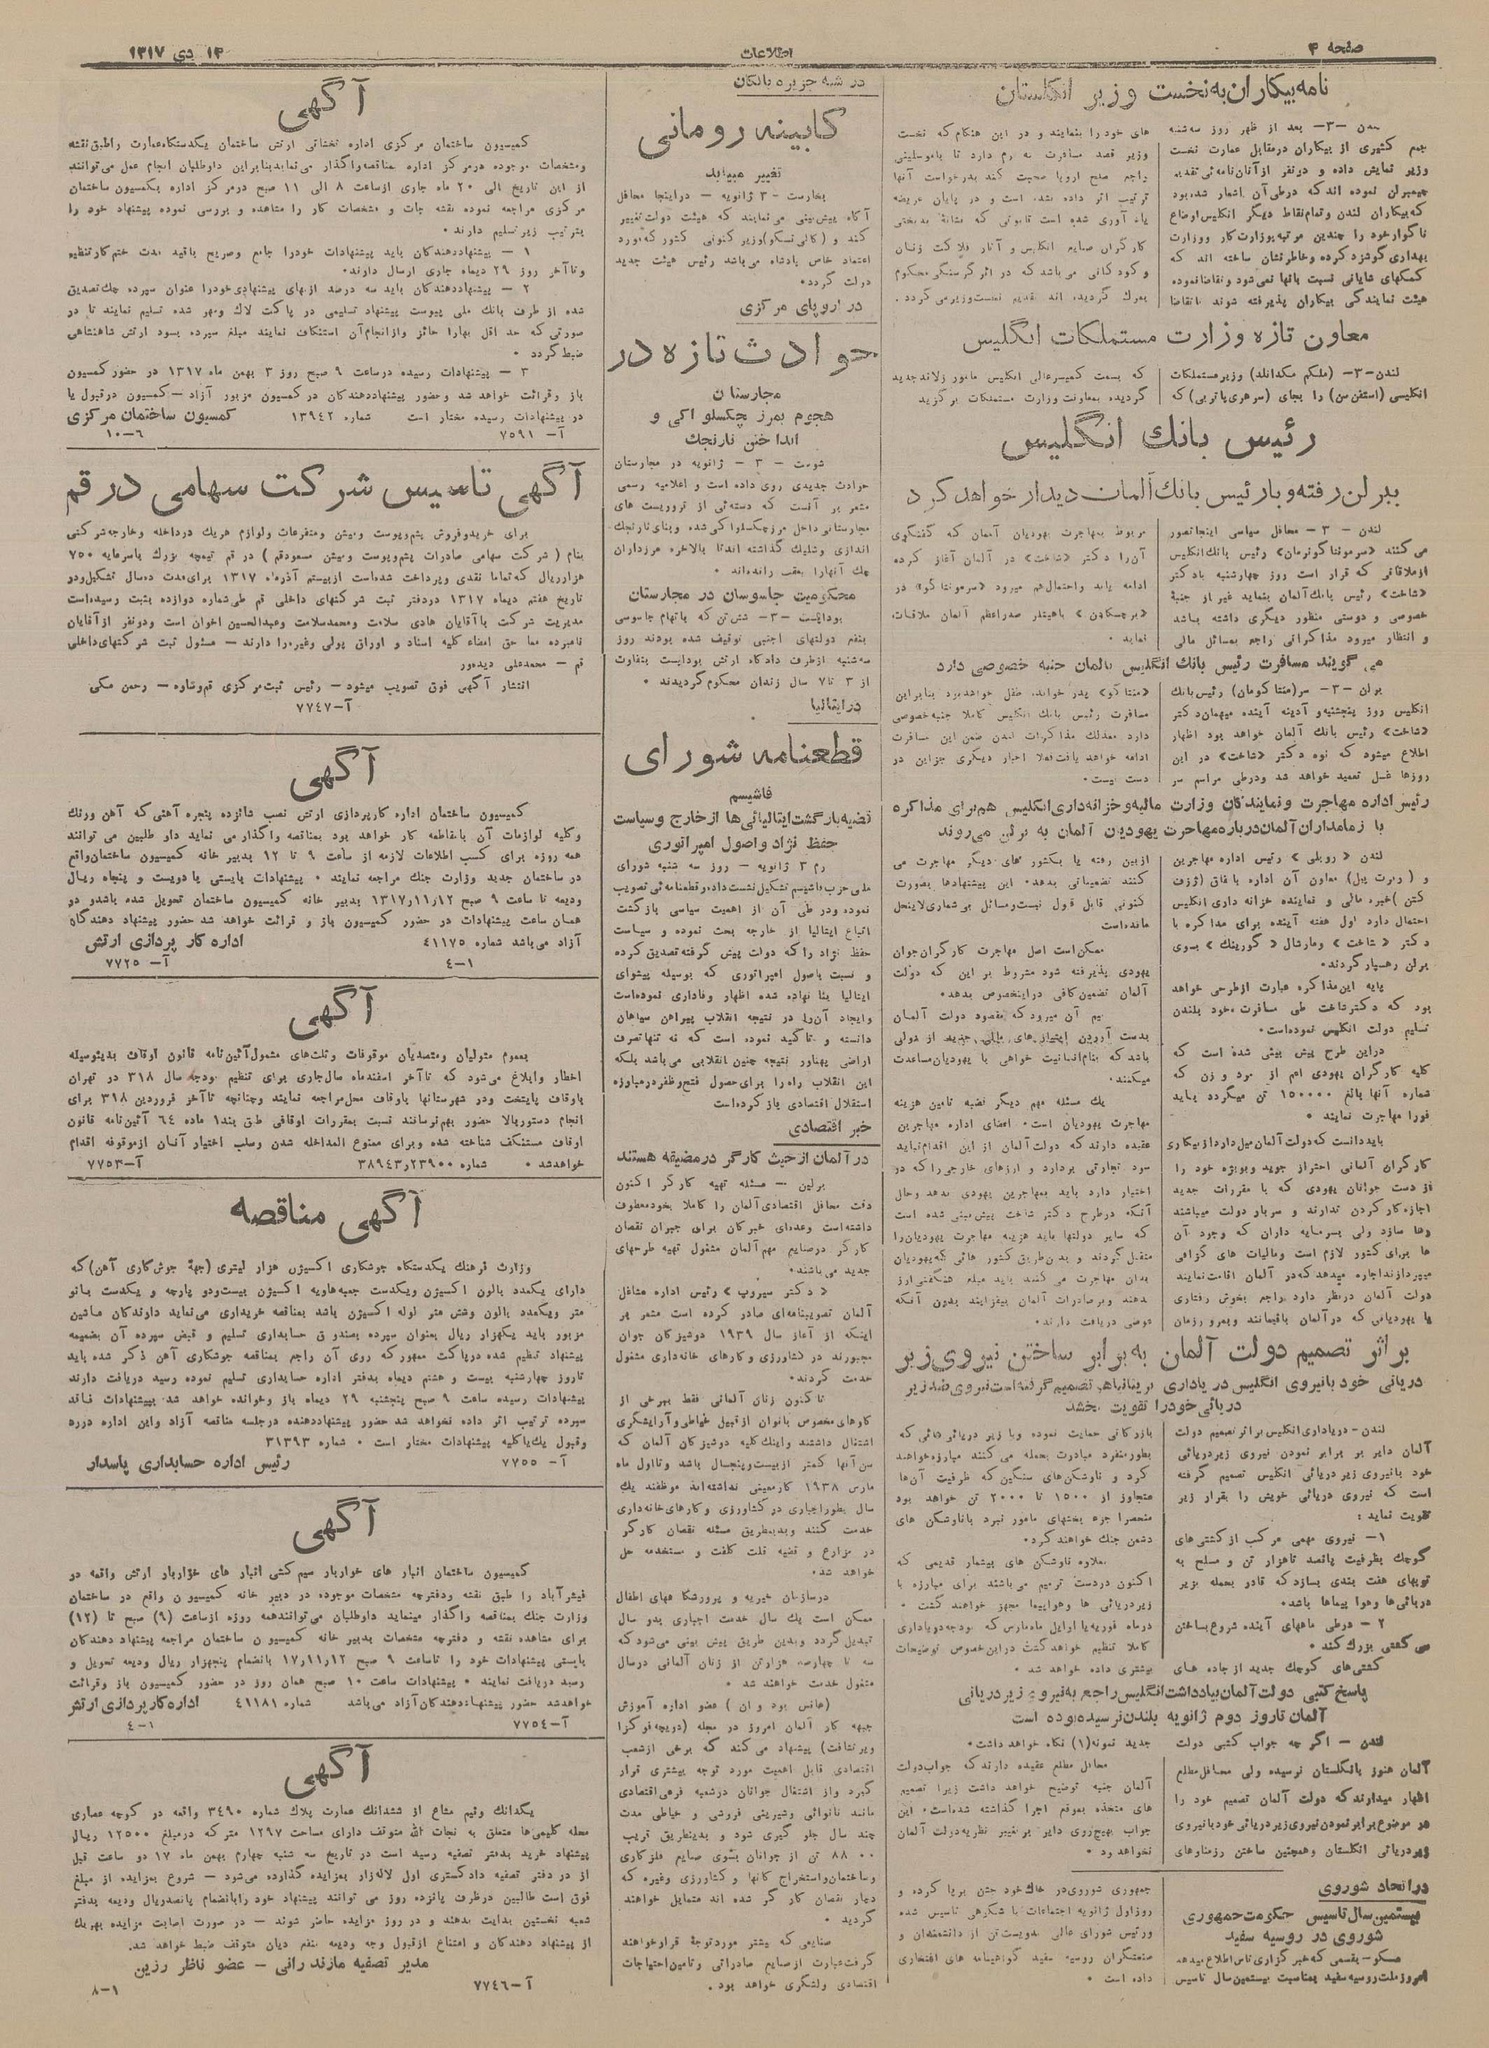 صفحه ۴
اطلاعات
۱۳ دی ۱۳۱۷
نامه بیکاران به نخست وزیر انگلستان
لندن -۳- بعد از ظهر روز سه‌شنبه
جمع کثیری از بیکاران در مقابل عمارت نخست
وزیر نمایش داده و دو نفر از آنان نامه‌ئی تقدیم
چمبرلن نموده اند که در طی آن اشعار شده بود
که بیکاران لندن و تمام نقاط دیگر انگلیس اوضاع
ناگوار خود را چندین مرتبه بوزارت کار و وزارت
بهداری گوشزد کرده و خاطر نشان ساخته اند که
کمکهای شایانی نسبت بآنها نمی‌شود و تقاضا نموده
هیئت نمایندگی بیکاران پذیرفته شوند تا تقاضا
های خود را بنمایند و در این هنگام که نخست
وزیر قصد مسافرت به رم دارد تا با موسلینی
راجع صلح اروپا صحبت کند بدرخواست آنها
ترتیب اثر داده نشده است و در پایان عریضه
یاد آوری شده است تابوتی که نشانهٔ بدبختی
کارگران صنایع انگلیس و آثار فلاکت زنان
و کودکانی می‌باشد که در اثر گرسنگی محکوم
بمرگ گردیده اند تقدیم نخست وزیر می‌گردد.
معاون تازه وزارت مستملکات انگلیس
لندن -۳- (ملکم مکدانلد) وزیر مستملکات
انگلیسی (استفن سن) را بجای (سر هری باتربی) که
که بسمت کمیسر عالی انگلیس مامور زلاند جدید
گردیده بمعاونت وزارت مستملکات برگزید
رئیس بانک انگلیس
ببرلن رفته و با رئیس بانک آلمان دیدار خواهد کرد
لندن - ۳ - محافل سیاسی اینجا تصور
می کنند «سر مونتاگو نرمان» رئیس بانک انگلیس
از ملاقاتی که قرار است روز چهارشنبه با دکتر
«شاخت» رئیس بانک آلمان بنماید غیر از جنبهٔ
خصوصی و دوستی منظور دیگری داشته باشد
و انتظار میرود مذاکراتی راجع بمسائل مالی
مربوط بمهاجرت یهودیان آلمان که گفتگوی
آن را دکتر «شاخت» در آلمان آغاز کرده
ادامه یابد و احتمال هم میرود «سر مونتاگو» در
«برچسگادن» با هیتلر صدر اعظم آلمان ملاقات
نماید
می گویند مسافرت رئیس بانک انگلیس بالمان جنبه خصوصی دارد
برلن -۳- سر (منتاگو نرمان) رئیس بانک
انگلیس روز پنجشنبه و آدینه آینده میهمان دکتر
«شاخت» رئیس بانک آلمان خواهد بود اظهار
اطلاع میشود که نوه دکتر «شاخت» در این
روزها غسل تعمید خواهد شد و در طی مراسم سر
«منتاگو» پدر خوانده طفل خواهد بود بنابراین
مسافرت رئیس بانک انگلیس کاملا جنبه خصوصی
دارد معذلک مذاکرات لندن ضمن این مسافرت
ادامه خواهد یافت فعلا اخبار دیگری جز این در
دست نیست.
رئیس اداره مهاجرت و نمایندگان وزارت مالیه و خزانه داری انگلیس هم برای مذاکره
با زمامداران آلمان درباره مهاجرت یهودیان آلمان به برلن می‌روند
لندن «روبلی» رئیس اداره مهاجرین
و (ربرت پیل) معاون آن اداره باتفاق (ژزف
کتن) خبره مالی و نماینده خزانه داری انگلیس
احتمال دارد اول هفته آینده برای مذاکره با
دکتر «شاخت» و مارشال «گورینگ» بسوی
برلن رهسپار گردند.
پایه این مذاکره عبارت از طرحی خواهد
بود که دکتر شاخت طی مسافرت خود بلندن
تسلیم دولت انگلیس نموده است.
در این طرح پیش بینی شده است که
کلیه کارگران یهودی اعم از مرد و زن که
شماره آنها بالغ ۱۵۰۰۰۰ تن میگردد باید
فورا مهاجرت نمایند •
باید دانست که دولت آلمان میل دارد از بیکاری
کارگران آلمانی احتراز جوید و بویژه خود را
از دست جوانان یهودی که با مقررات جدید
اجازه کار کردن ندارند و سربار دولت میباشند
رها سازد ولی بسرمایه داران که وجود آن
ها برای کشور لازم است و مالیات های گزافی
میپردازند اجازه میدهد که در آلمان اقامت نمایند
دولت آلمان در نظر دارد راجع بخوش رفتاری
با یهودیانی که در آلمان باقیمانند و بمرور زمان
از بین رفته یا بکشور های دیگر مهاجرت می
کنند تضمیناتی بدهد. این پیشنهادها بصورت
کنونی قابل قبول نیست و مسائل بی شماری لاینحل
مانده است
ممکن است اصل مهاجرت کارگران جوان
یهودی پذیرفته شود مشروط بر این که دولت
آلمان تضمین کافی در اینخصوص بدهد.
بیم آن میرود که مقصود دولت آلمان
بدست آوردن امتیاز های مالی جدید از دولی
باشد که بنام انسانیت خواهی با یهودیان مساعدت
میکنند.
یک مسئله مهم دیگر قضیه تامین هزینه
مهاجرت یهودیان است. اعضای اداره مهاجرین
عقیده دارند که دولت آلمان از این اقدام نباید
سود تجارتی بردارد و ارزهای خارجی را که در
اختیار دارد باید بمهاجرین یهودی بدهد و حال
آنکه در طرح دکتر شاخت پیش بینی شده است
که سایر دولتها باید هزینه مهاجرت یهودیان را
متقبل گردند و بدین طریق کشور هائی که یهودیان
بدان مهاجرت می کنند باید مبلغ هنگفتی ارز
بدهند و بر صادرات آلمان بیفزایند بدون آنکه
عوضی دریافت دارند.
بر اثر تصمیم دولت آلمان به برابر ساختن نیروی زیر
دریائی خود با نیروی انگلیس دریاداری بریتانیا هم تصمیم گرفته است نیروی ضد زیر
دریائی خود را تقویت بخشد
لندن - دریاداری انگلیس بر اثر تصمیم دولت
آلمان دایر بر برابر نمودن نیروی زیر دریائی
خود با نیروی زیر دریائی انگلیس تصمیم گرفته
است که نیروی دریائی خویش را بقرار زیر
تقویت نماید:
۱- نیروی مهمی مرکب از کشتی های
کوچک بظرفیت پانصد تا هزار تن و مسلح به
توپهای هفت بندی بسازد که قادر بحمله بزیر
دریائی‌ها و هوا پیماها باشد.
۲ - در طی ماههای آینده شروع بساختن
می کشتی بزرگ کند •
کشتی‌های کوچک جدید از جاده های
بازرگانی حمایت نموده و با زیر دریائی هائی که
بطور منفرد مبادرت بحمله می کنند مبارزه خواهند
کرد و ناوشکن‌های سنگین که ظرفیت آن‌ها
متجاوز از ۱۵۰۰ تا ۲۰۰۰ تن خواهد بود
منحصرا جزء بخشهای مامور نبرد با ناوشکن های
دشمن جنگ خواهند کرد.
بعلاوه ناوشکن های بیشمار قدیمی که
اکنون در دست ترمیم می باشند برای مبارزه با
زیر دریائی ها و هواپیما مجهز خواهند گشت •
در ماه فوریه یا اوایل ماه مارس که بودجه دریاداری
کاملا تنظیم خواهد گشت در این خصوص توضیحات
بیشتری داده خواهد شد •
پاسخ کتبی دولت آلمان بیادداشت انگلیس راجع به نیروی زیر دریائی
آلمان تا روز دوم ژانویه بلندن نرسیده بوده است
لندن - اگر چه جواب کتبی دولت
آلمان هنوز بانگلستان نرسیده ولی محافل مطلع
اظهار میدارند که دولت آلمان تصمیم خود را
در موضوع برابر نمودن نیروی زیر دریائی خود با نیروی
زیر دریائی انگلستان و همچنین ساختن رزمناوهای
جدید نمونه (۱) نگاه خواهد داشت.
محافل مطلع عقیده دارند که جواب دولت
آلمان جنبه توضیح خواهد داشت زیرا تصمیم
های متخذه بموقع اجرا گذاشته شده است. این
جواب بهیچ روی دایر بر تغییر نظریه دولت آلمان
نخواهد بود •
در اتحاد شوروی
بیستمین سال تاسیس حکومت جمهوری
شوروی در روسیه سفید
مسکو - بقسمی که خبرگزاری تاس اطلاع میدهد
امروز ملت روسیه سفید بمناسبت بیستمین سال تاسیس
جمهوری شوروی در خاک خود جشن برپا کرده و
روز اول ژانویه اجتماعات با شکوهی تاسیس شده
و رئیس شورای عالی بدویست تن از دانشمندان و
صنعتگران روسیه سفید گواهینامه های افتخاری
داده است •
در شبه جزیره بالکان
کابینه رومانی
تغییر مییابد
بخارست - ۳ ژانویه - در اینجا محافل
آگاه پیش بینی می نمایند که هیئت دولت تغییر
کند و (کالی نسکو) وزیر کنونی کشور که مورد
اعتماد خاص پادشاه می باشد رئیس هیئت جدید
دولت گردد.
در اروپای مرکزی
حوادث تازه در
مجارستان
هجوم بمرز چکسلواکی و
انداختن نارنجک
شوست - ۳ - ژانویه در مجارستان
حوادث جدیدی روی داده است و اعلامیه رسمی
مشعر بر آنست که دسته‌ئی از تروریست های
مجارستانی داخل مرز چکسلواکی شده و بنای نارنجک
اندازی و شلیک گذاشته اند تا بالاخره مرزداران
چک آنها را بعقب رانده‌اند •
محکومیت جاسوسان در مجارستان
بوداپست -۳- شش تن که باتهام جاسوسی
بنفع دولتهای اجنبی توقیف شده بودند روز
سه شنبه از طرف دادگاه ارتش بوداپست بتفاوت
از ۳ تا ۷ سال زندان محکوم گردیدند •
در ایتالیا
قطعنامه شورای
فاشیسم
قضیه بازگشت ایتالیائی‌ها از خارج و سیاست
حفظ نژاد و اصول امپراتوری
رم ۳ ژانویه - روز سه شنبه شورای
ملی حزب فاشیسم تشکیل نشست داده و قطعنامه ئی تصویب
نموده و در طی آن از اهمیت سیاسی بازگشت
اتباع ایتالیا از خارجه بحث نموده و سیاست
حفظ نژاد را که دولت پیش گرفته تصدیق کرده
و نسبت باصول امپراتوری که بوسیله پیشوای
ایتالیا بنا نهاده شده اظهار وفاداری نموده است
و ایجاد آن را در نتیجه انقلاب پیراهن سیاهان
دانسته و تاکید نموده است که نه تنها تصرف
اراضی پهناور نتیجه چنین انقلابی می باشد بلکه
این انقلاب راه را برای حصول فتح و ظفر در مبارزه
استقلال اقتصادی باز کرده است
خبر اقتصادی
در آلمان از حیث کارگر در مضیقه هستند
برلین - مسئله تهیه کارگر اکنون
دقت محافل اقتصادی آلمان را کاملا بخود معطوف
داشته است و عده‌ای خبرگان برای جبران نقصان
کارگر در صنایع مهم آلمان مشغول تهیه طرحهای
جدید می باشند.
«دکتر سیروپ» رئیس اداره مشاغل
آلمان تصویبنامه‌ای صادر کرده است مشعر بر
اینکه از آغاز سال ۱۹۳۹ دوشیزگان جوان
مجبورند در کشاورزی و کارهای خانه داری مشغول
خدمت گردند.
تا کنون زنان آلمانی فقط ببرخی از
کارهای مخصوص بانوان از قبیل خیاطی و آرایشگری
اشتغال داشتند و اینک کلیه دوشیزگان آلمان که
سن آنها کمتر از بیست و پنجسال باشد و تا اول ماه
مارس ۱۹۳۸ کار معینی نداشته‌اند موظفند یک
سال بطور اجباری در کشاورزی و کارهای خانه داری
خدمت کنند و بدین طریق مسئله نقصان کارگر
در مزارع و قضیه قلت کلفت و مستخدمه حل
خواهد شد.
در سازمان خیریه و پرورشگا های اطفال
ممکن است یک سال خدمت اجباری بدو سال
تبدیل گردد و بدین طریق پیش بینی می‌شود که
سه تا چهار صد هزار تن از زنان آلمانی در سال
مشغول خدمت خواهند شد •
(هانس بود و ان) عضو اداره آموزش
جبهه کار آلمان امروز در مجله (دویچه فولکز
ویرتشافت) پیشنهاد می کند که برخی از شعب
اقتصادی قابل اهمیت مورد توجه بیشتری قرار
گیرد و از اشتغال جوانان در شعبه فرعی اقتصادی
مانند نانوائی و شیرینی فروشی و خیاطی مدت
چند سال جلو گیری شود و بدینطریق قریب
۸۸۰۰۰ تن از جوانان بسوی صنایع فلز کاری
و ساختمان و استخراج کانها و کشاورزی و غیره که
دچار نقصان کارگر شده اند متمایل خواهند
گردید •
صنایعی که بیشتر مورد توجه قرار خواهند
گرفت عبارت از صنایع صادراتی و تامین احتیاجات
اقتصادی و لشگری خواهد بود.
آگهی
کمیسیون ساختمان مرکزی اداره نخشائی ارتش ساختمان یکدستگاه عمارت را طبق نقشه
و مشخصات موجوده در مرکز اداره بمناقصه واگذار می نماید بنابراین داوطلبان انجام عمل می‌توانند
از این تاریخ الی ۲۰ ماه جاری از ساعت ۸ الی ۱۱ صبح در مرکز اداره بکمیسیون ساختمان
مرکزی مراجعه نموده نقشه جات و مشخصات کار را مشاهده و بررسی نموده پیشنهاد خود را
بترتیب زیر تسلیم دارند •
۱ - پیشنهاد دهندگان باید پیشنهادات خود را جامع و صریح با قید مدت ختم کار تنظیم
و تا آخر روز ۲۹ دیماه جاری ارسال دارند.
۲ - پیشنهاد دهندگان باید سه درصد از بهای پیشنهادی خود را عنوان سپرده چک تصدیق
شده از طرف بانک ملی پیوست پیشنهاد تسلیمی در پاکت لاک و مهر شده تسلیم نمایند تا در
صورتی که حد اقل بها را حائز و از انجام آن استنکاف نمایند مبلغ سپرده بسود ارتش شاهنشاهی
ضبط گردد •
۳ - پیشنهادات رسیده در ساعت ۹ صبح روز ۳ بهمن ماه ۱۳۱۷ در حضور کمسیون
باز و قرائت خواهد شد و حضور پیشنهاد دهندگان در کمسیون مزبور آزاد - کمسیون در قبول یا
رد پیشنهادات رسیده مختار است شماره ۱۳۹۴۲ کمسیون ساختمان مرکزی
آ- ۷۵۹۱ ۶-۱۰
آگهی تاسیس شرکت سهامی در قم
برای خرید و فروش پشم و پوست و میشن و متفرعات و لوازم هر یک در داخله و خارجه شرکتی
بنام (شرکت سهامی صادرات پشم و پوست و میشن مسعود قم) در قم تیمچه بزرگ با سرمایه ۷۵۰
هزار ریال که تماما نقدی و پرداخت شده است از بیستم آذر ماه ۱۳۱۷ برای مدت ده سال تشکیل و در
تاریخ هفتم دیماه ۱۳۱۷ در دفتر ثبت شرکتهای داخلی قم طی شماره دوازده بثبت رسیده است
مدیریت شرکت با آقایان هادی سلامت و محمد سلامت و عبدالحسین اخوان است و دو نفر از آقایان
نامبرده معا حق امضاء کلیه اسناد و اوراق پولی و غیره را دارند - مسئول ثبت شرکتهای داخلی
قم - محمد علی دیده ور
انتشار آگهی فوق تصویب میشود - رئیس ثبت مرکزی قم و ساوه - رحمن مکی
آ-۷۷۴۷
آگهی
کمیسیون ساختمان اداره کار پردازی ارتش نصب شانزده پنجره آهنی که آهن و رنگ
و کلیه لوازمات آن با مقاطعه کار خواهد بود بمناقصه واگذار می نماید داو طلبین می توانند
همه روزه برای کسب اطلاعات لازمه از ساعت ۹ تا ۱۲ بدبیر خانه کمیسیون ساختمان واقع
در ساختمان جدید وزارت جنگ مراجعه نمایند • پیشنهادات بایستی با دویست و پنجاه ریال
ودیعه تا ساعت ۹ صبح ۱۳۱۷٫۱۱٫۱۲ بدبیر خانه کمیسیون ساختمان تحویل شده باشد و در
همان ساعت پیشنهادات در حضور کمیسیون باز و قرائت خواهد شد حضور پیشنهاد دهندگان
آزاد می باشد شماره ۴۱۱۷۵ اداره کار پردازی ارتش
۱-۴ آ- ۷۷۲۵
آگهی
بعموم متولیان و متصدیان موقوفات و ثلث‌های مشمول آئین نامه قانون اوقاف بدینوسیله
اخطار و ابلاغ می شود که تا آخر اسفند ماه سال جاری برای تنظیم بودجه سال ۳۱۸ در تهران
باوقاف پایتخت و در شهرستانها باوقاف محل مراجعه نمایند و چنانچه تا آخر فروردین ۳۱۸ برای
انجام دستور بالا حضور بهم نرسانند نسبت بمقررات اوقافی طبق بند ۱ ماده ۶۴ آئین نامه قانون
اوقاف مستنکف شناخته شده و برای ممنوع المداخله شدن و سلب اختیار آنان از موقوفه اقدام
خواهد شد • شماره ۳۸۹۴۳٫۲۳۹۰۰ آ-۷۷۵۳
آگهی مناقصه
وزارت فرهنگ یکدستگاه جوشکاری اکسیژن هزار لیتری (جهة جوش کاری آهن) که
دارای یکعدد بالون اکسیژن و یکدست جعبه هاویه اکسیژن بیست و دو پارچه و یکدست مانو
متر و یکعدد بالون و شش متر لوله اکسیژن باشد بمناقصه خریداری می نماید دارندگان ماشین
مزبور باید یکهزار ریال بعنوان سپرده بصندوق حسابداری تسلیم و قبض سپرده آن بضمیمه
پیشنهاد تنظیم شده در پاکت ممهور که روی آن راجع بمناقصه جوشکاری آهن ذکر شده باید
تا روز چهارشنبه بیست و هشتم دیماه بدفتر اداره حسابداری تسلیم نموده رسید دریافت دارند
پیشنهادات رسیده ساعت ۹ صبح پنجشنبه ۲۹ دیماه باز و خوانده خواهد شد بپیشنهادات فاقد
سپرده ترتیب اثر داده نخواهد شد حضور پیشنهاد دهنده در جلسه مناقصه آزاد و این اداره در رد
و قبول یک یا کلیه پیشنهادات مختار است • شماره ۳۱۳۹۳
آ- ۷۷۵۵ رئیس اداره حسابداری پاسدار
آگهی
کمیسیون ساختمان انبار های خواربار سیم کشی انبار های خواربار ارتش واقعه در
قیشر آباد را طبق نقشه و دفترچه مشخصات موجوده در دبیر خانه کمیسیون واقع در ساختمان
وزارت جنگ بمناقصه واگذار مینماید داوطلبان می توانند همه روزه از ساعت (۹) صبح تا (۱۲)
برای مشاهده نقشه و دفترچه مشخصات بدبیر خانه کمیسیون ساختمان مراجعه پیشنهاد دهندگان
بایستی پیشنهادات خود را تا ساعت ۹ صبح ۱۷٫۱۱٫۱۲ بانضمام پنجهزار ریال ودیعه تحویل و
رسید دریافت نمایند • پیشنهادات ساعت ۱۰ صبح همان روز در حضور کمیسیون باز و قرائت
خواهد شد حضور پیشنهاد دهندگان آزاد می باشد شماره ۴۱۱۸۱ اداره کار پردازی ارتش
آ-۷۷۵۴ ۱-۴
آگهی
یکدانگ و نیم مشاع از ششدانگ عمارت پلاک شماره ۳۴۹۰ واقعه در کوچه عصاری
محله کلیمی‌ها متعلق به نجات الله متوقف دارای مساحت ۱۲۹۷ متر که در مبلغ ۱۲۵۰۰ ریال
پیشنهاد خرید بدفتر تصفیه رسید است در تاریخ سه شنبه چهارم بهمن ماه ۱۷ دو ساعت قبل
از ظهر در دفتر تصفیه دادگستری اول لاله‌زار بمزایده گذارده می‌شود - شروع بمزایده از مبلغ
فوق است طالبین در ظرف پانزده روز می توانند پیشنهاد خود را بانضمام پانصد ریال ودیعه بدفتر
شعبه نخستین بدایت بدهند و در روز مزایده حاضر شوند - در صورت اصابت مزایده بهر یک
از پیشنهاد دهندگان و امتناع از قبول وجه ودیعه بنفع دیان متوقف ضبط خواهد شد.
مدیر تصفیه مازندرانی - عضو ناظر رزین
آ-۷۷۴۶ ۱-۸